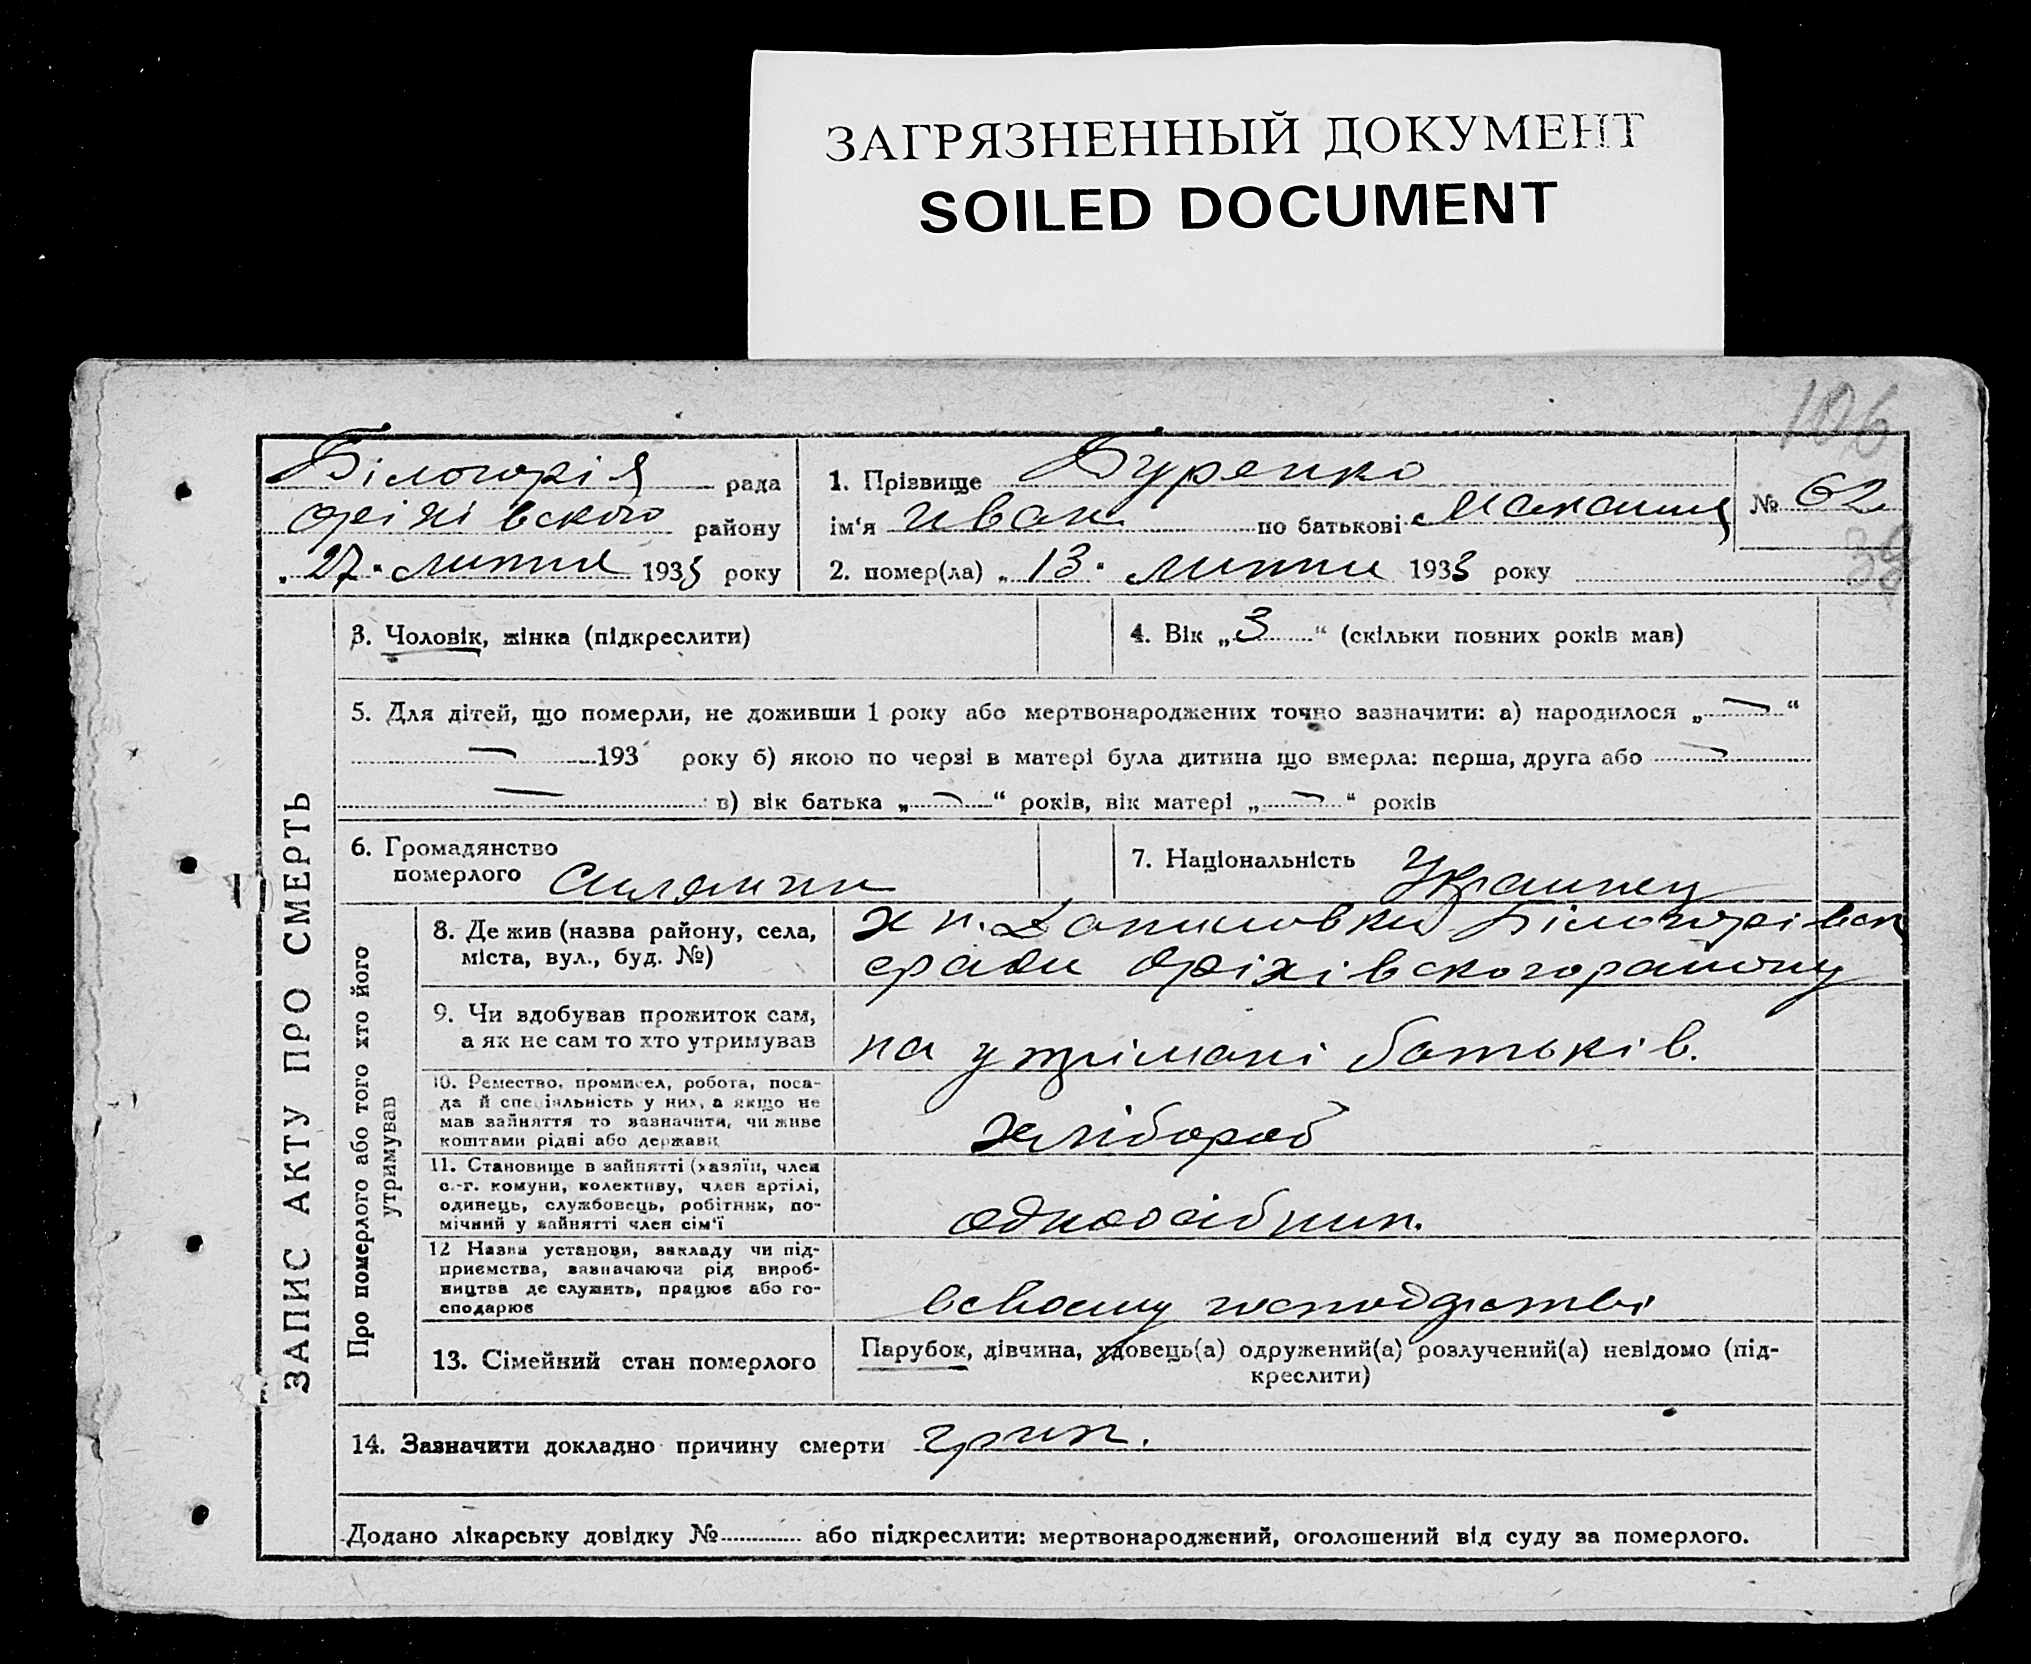 ЗАГРЯЗНЕННЫЙ ДОКУМЕНТ
SOILED DOCUMENT
106
Білогорія рада
оріхівського району
„27“ лютня 1933 року
1. Прізвище Буренко
ім‘я Иван по батькові
2. помер(ла) „13“ лютня 1933 року
№ 62
38
ЗАПИС АКТУ ПРО СМЕРТЬ
3. Чоловік, жінка (підкреслити)
4. Вік „3“ (скільки повних років мав)
5. Для дітей, що померли, не доживши 1 року або мертвонароджених точно зазначити: а) народилося „—“
— 193 року б) якою по черзі в матері була дитина що вмерла: перша, друга або —
— в) вік батька „—“ років, вік матері „—“ років
6. Громадянство
померлого Силянин
7. Національність Украинец
Про померлого або того хто його
утримував
8. Де жив (назва району, села,
міста, вул., буд. №)
х Білогорівск
сради Оріхівского району
9. Чи вдобував прожиток сам,
а як не сам то хто утримував
на утрімані батьків.
10. Ремество, промисел, робота, поса-
да й спеціяльність у них, а якщо не
мав зайняття то зазначити, чи живе
коштами рідні або держави
хлібороб
11. Становище в зайнятті (хазяїн, член
с.-г. комуни, колективу, член артілі,
одинець, службовець, робітник, по-
мічний у зайнятті член сім‘ї
одноосібник.
12 Назва установи, закладу чи під-
приємства, зазначаючи рід вироб-
ництва де служить, працює або го-
сподарює
всвоему господрстві
13. Сімейний стан померлого
Парубок, дівчина, удовець(а) одружений(а) розлучений(а) невідомо (під-
креслити)
14. Зазначити докладно причину смерти грип.
Додано лікарську довідку № або підкреслити: мертвонароджений, оголошений від суду за померлого.